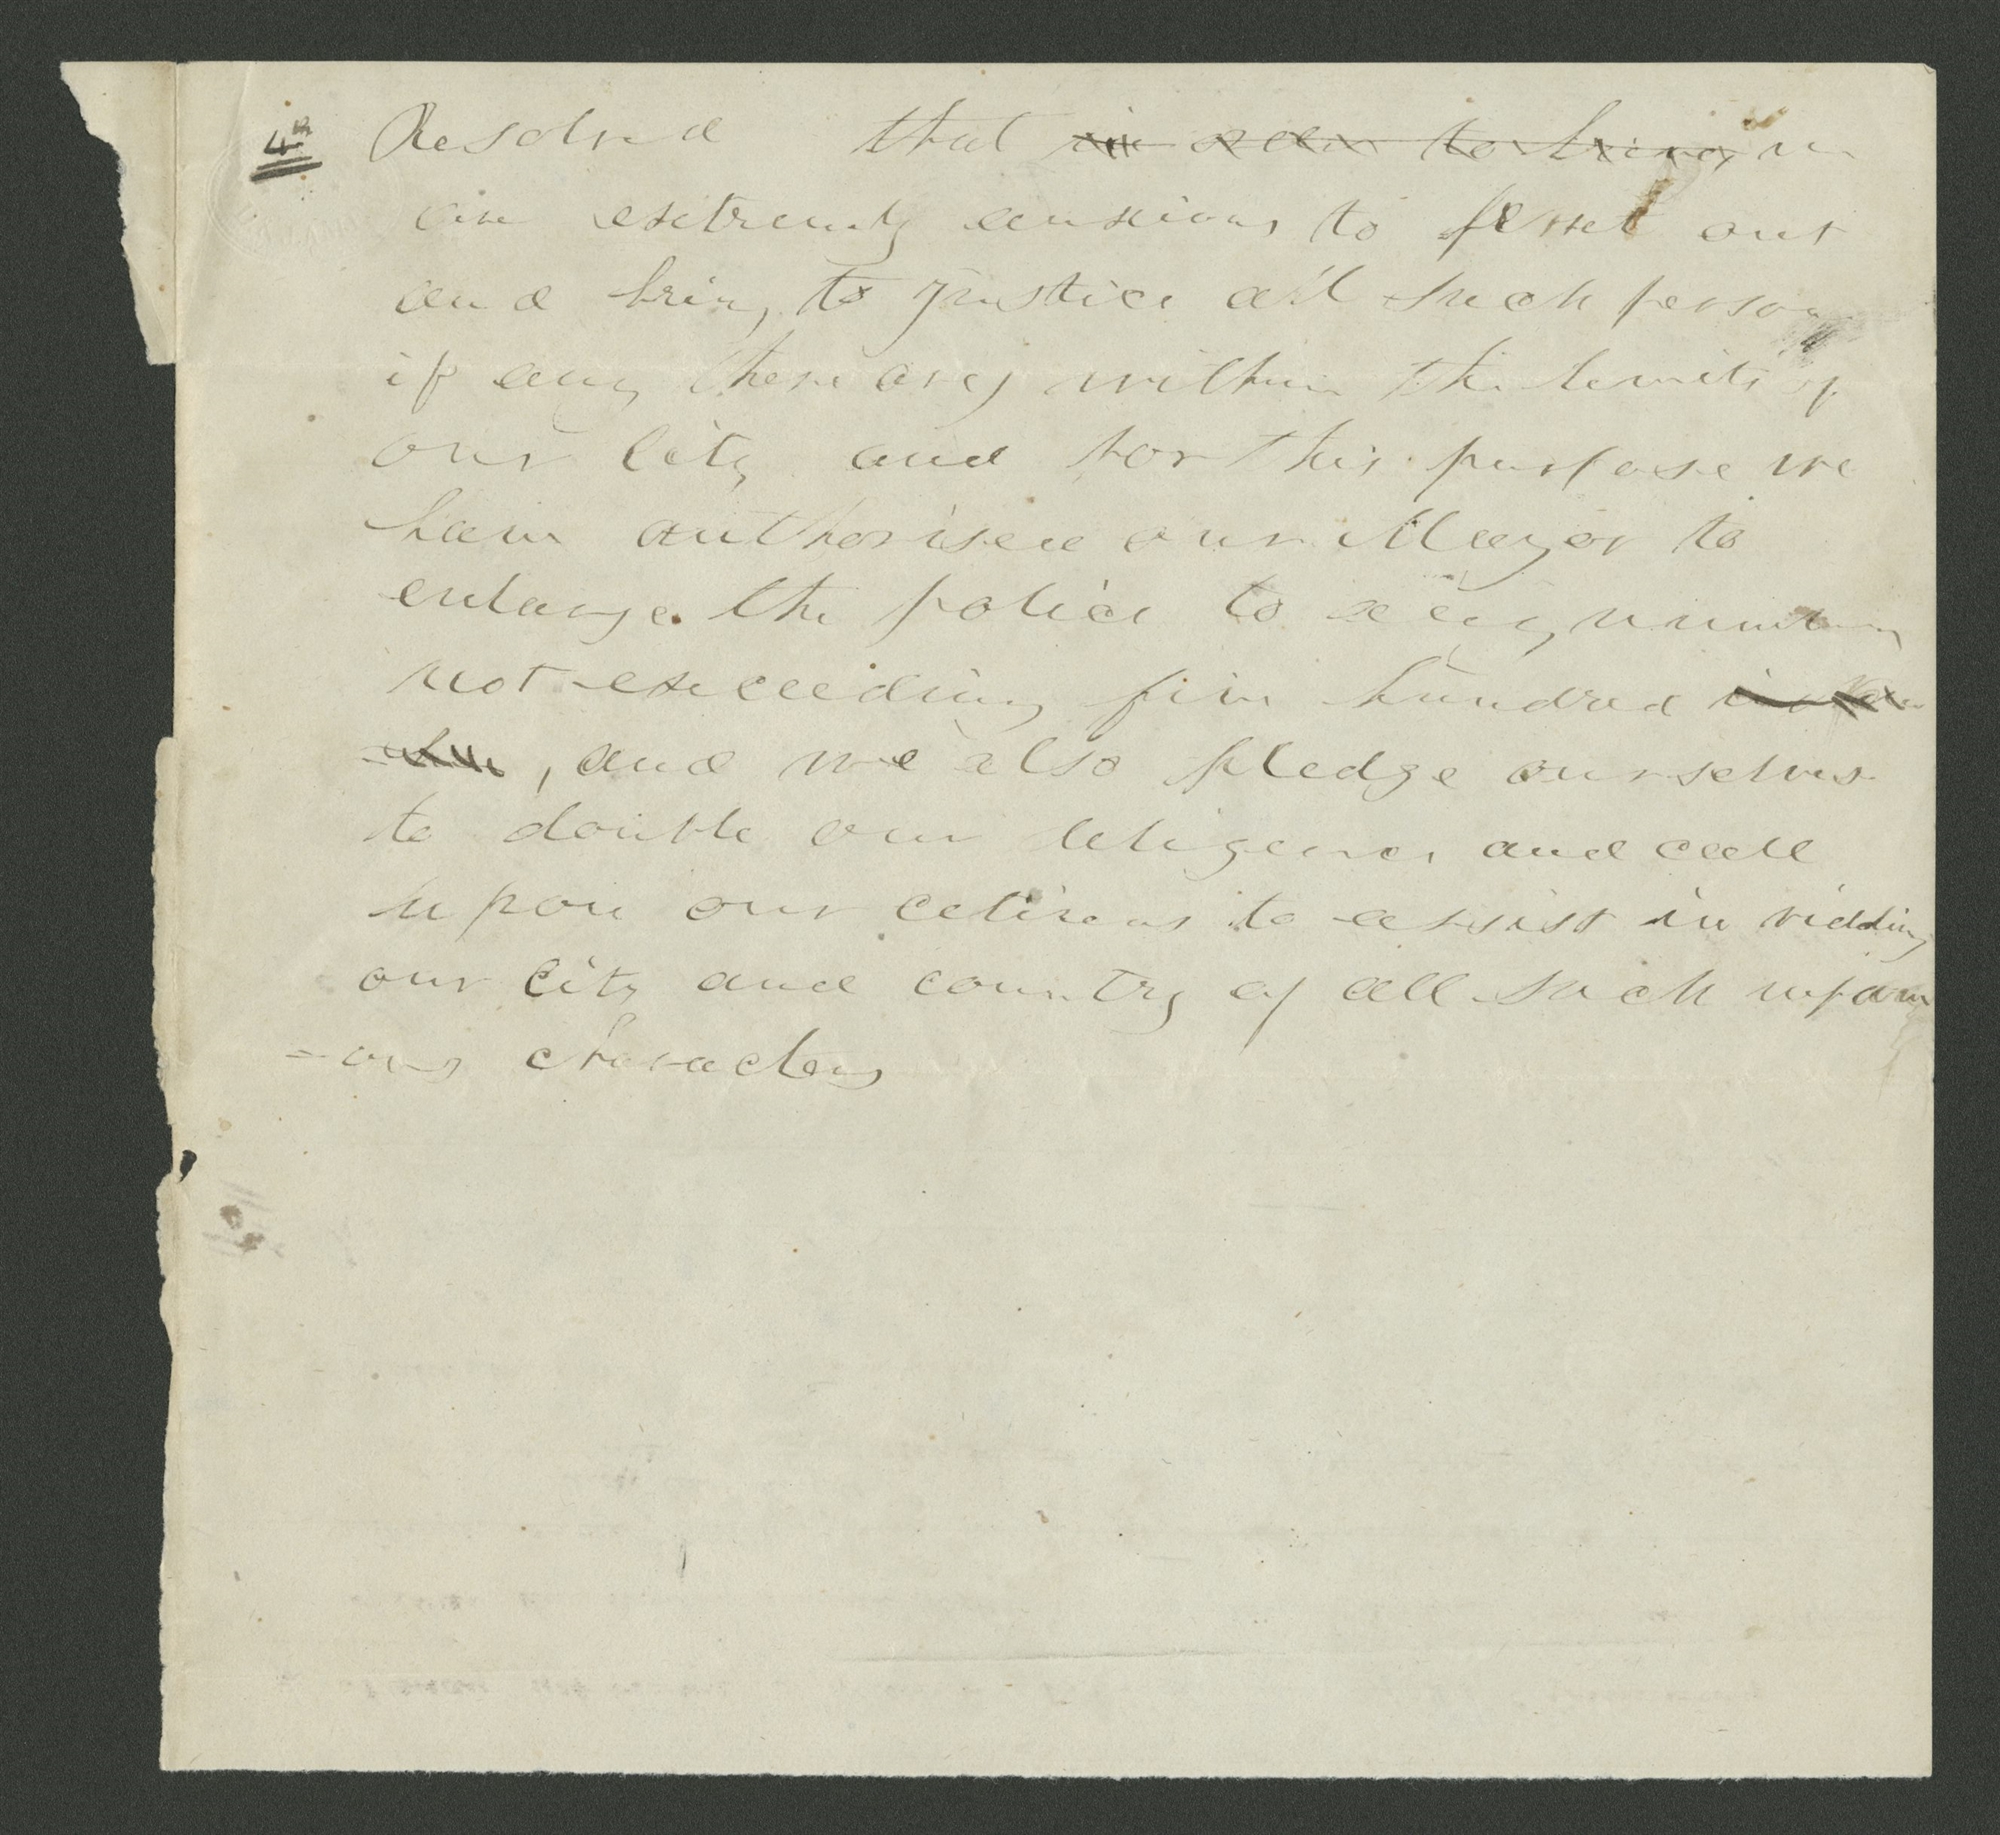 4th Resolved that ~~in order to bring~~ we
are extremely anxious to ferret out
and bring to justice all such persons
if any there are, within the limits of
our City and for this purpose we
have authorised our Mayor to
enlarge the police to any number
not exceeding five hundred
, and we also pledge ourselves
to double our deligence and call
upon our citizens to assist in ridding
our City and country of all such infam
=ous characters